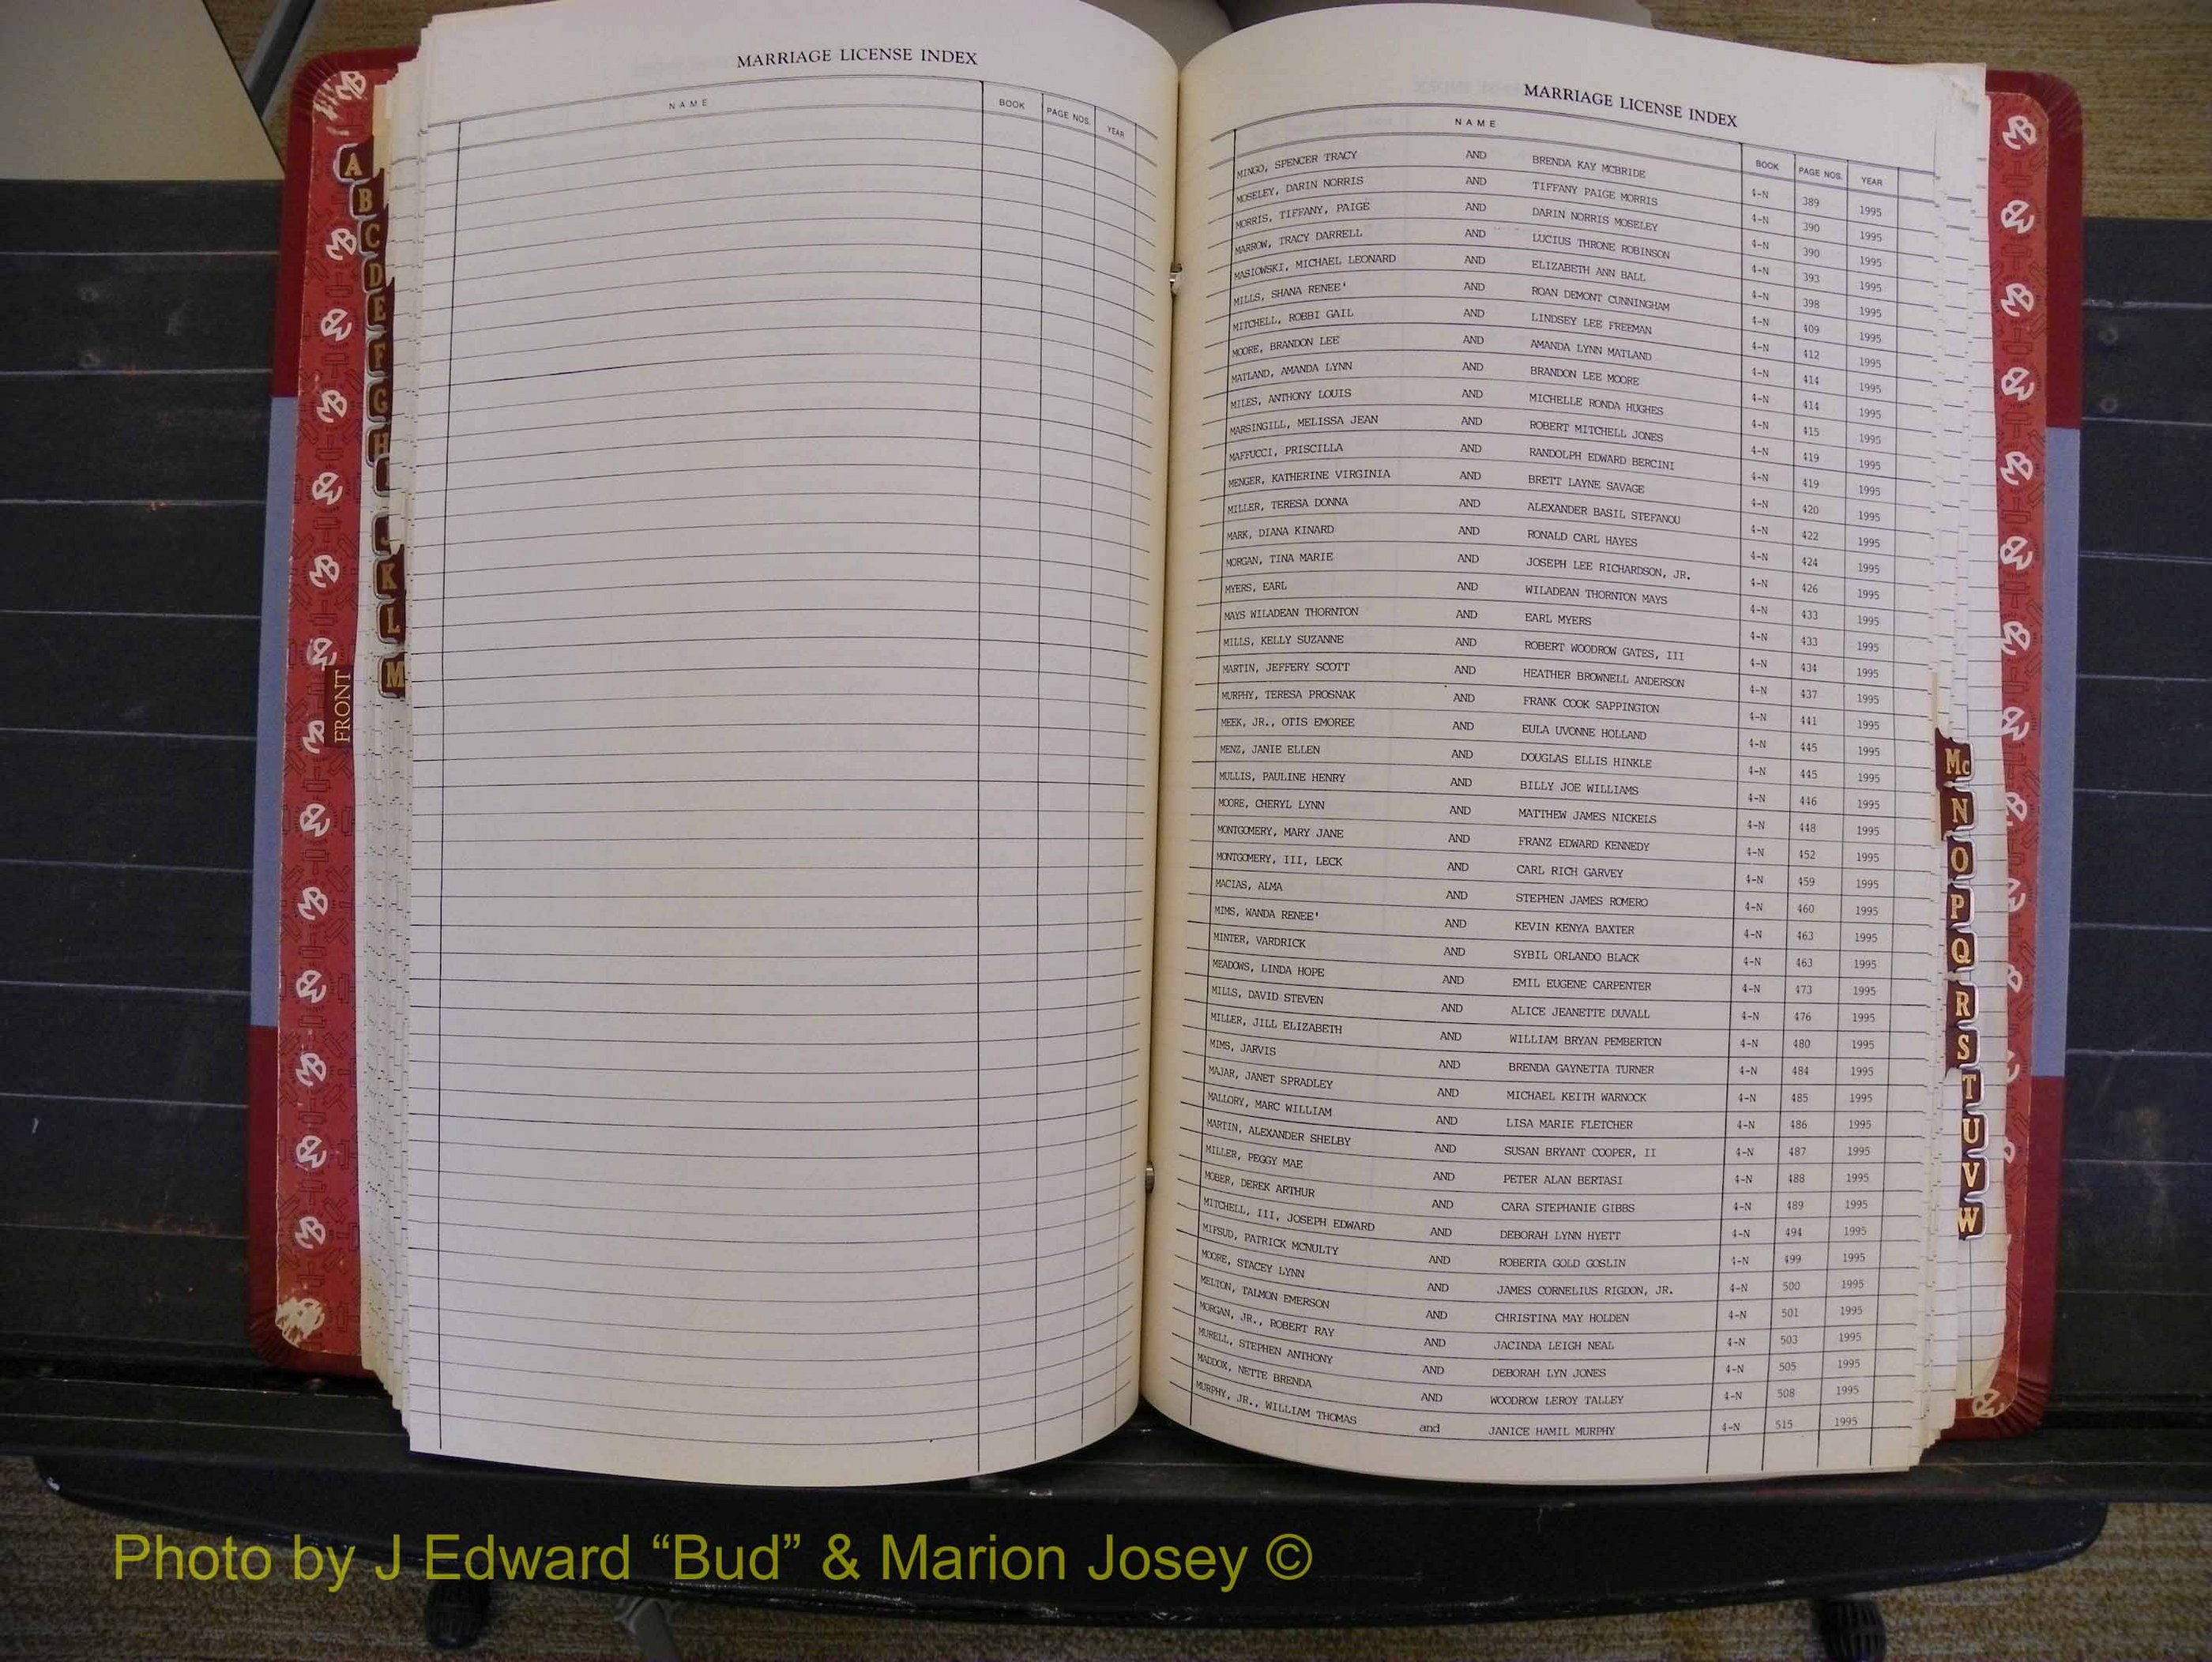 MARRIAGE LICENSE INDEX
NAME BOOK PAGE NOS. YEAR
A
B
C
D
E
F
G
H
I
J
K
L
M
FRONT
MARRIAGE LICENSE INDEX
NAME BOOK PAGE NOS. YEAR
MINGO, SPENCER TRACY AND BRENDA KAY MCBRIDE 4-N 389 1995
MOSELEY, DARIN NORRIS AND TIFFANY PAIGE MORRIS 4-N 390 1995
MORRIS, TIFFANY, PAIGE AND DARIN NORRIS MOSELEY 4-N 390 1995
MARROW, TRACY DARRELL AND LUCIUS THRONE ROBINSON 4-N 393 1995
MASIOWSKI, MICHAEL LEONARD AND ELIZABETH ANN BALL 4-N 398 1995
MILLS, SHANA RENEE' AND ROAN DEMONT CUNNINGHAM 4-N 409 1995
MITCHELL, ROBBI GAIL AND LINDSEY LEE FREEMAN 4-N 412 1995
MOORE, BRANDON LEE AND AMANDA LYNN MATLAND 4-N 414 1995
MATLAND, AMANDA LYNN AND BRANDON LEE MOORE 4-N 414 1995
MILES, ANTHONY LOUIS AND MICHELLE RONDA HUGHES 4-N 415 1995
MARSINGILL, MELISSA JEAN AND ROBERT MITCHELL JONES 4-N 419 1995
MAFFUCCI, PRISCILLA AND RANDOLPH EDWARD BERCINI 4-N 419 1995
MENGER, KATHERINE VIRGINIA AND BRETT LAYNE SAVAGE 4-N 420 1995
MILLER, TERESA DONNA AND ALEXANDER BASIL STEFANOU 4-N 422 1995
MARK, DIANA KINARD AND RONALD CARL HAYES 4-N 424 1995
MORGAN, TINA MARIE AND JOSEPH LEE RICHARDSON, JR. 4-N 426 1995
MYERS, EARL AND WILADEAN THORNTON MAYS 4-N 433 1995
MAYS WILADEAN THORNTON AND EARL MYERS 4-N 433 1995
MILLS, KELLY SUZANNE AND ROBERT WOODROW GATES, III 4-N 434 1995
MARTIN, JEFFERY SCOTT AND HEATHER BROWNELL ANDERSON 4-N 437 1995
MURPHY, TERESA PROSNAK AND FRANK COOK SAPPINGTON 4-N 441 1995
MEEK, JR., OTIS EMOREE AND EULA UVONNE HOLLAND 4-N 445 1995
MENZ, JANIE ELLEN AND DOUGLAS ELLIS HINKLE 4-N 445 1995
MULLIS, PAULINE HENRY AND BILLY JOE WILLIAMS 4-N 446 1995
MOORE, CHERYL LYNN AND MATTHEW JAMES NICKELS 4-N 448 1995
MONTGOMERY, MARY JANE AND FRANZ EDWARD KENNEDY 4-N 452 1995
MONTGOMERY, III, LECK AND CARL RICH GARVEY 4-N 459 1995
MACIAS, ALMA AND STEPHEN JAMES ROMERO 4-N 460 1995
MIMS, WANDA RENEE' AND KEVIN KENYA BAXTER 4-N 463 1995
MINTER, VARDRICK AND SYBIL ORLANDO BLACK 4-N 463 1995
MEADOWS, LINDA HOPE AND EMIL EUGENE CARPENTER 4-N 473 1995
MILLS, DAVID STEVEN AND ALICE JEANETTE DUVALL 4-N 476 1995
MILLER, JILL ELIZABETH AND WILLIAM BRYAN PEMBERTON 4-N 480 1995
MIMS, JARVIS AND BRENDA GAYNETTA TURNER 4-N 484 1995
MAJAR, JANET SPRADLEY AND MICHAEL KEITH WARNOCK 4-N 485 1995
MALLORY, MARC WILLIAM AND LISA MARIE FLETCHER 4-N 486 1995
MARTIN, ALEXANDER SHELBY AND SUSAN BRYANT COOPER, II 4-N 487 1995
MILLER, PEGGY MAE AND PETER ALAN BERTASI 4-N 488 1995
MOBER, DEREK ARTHUR AND CARA STEPHANIE GIBBS 4-N 489 1995
MITCHELL, III, JOSEPH EDWARD AND DEBORAH LYNN HYETT 4-N 494 1995
MIFSUD, PATRICK MCNULTY AND ROBERTA GOLD GOSLIN 4-N 499 1995
MOORE, STACEY LYNN AND JAMES CORNELIUS RIGDON, JR. 4-N 500 1995
MELTON, TALMON EMERSON AND CHRISTINA MAY HOLDEN 4-N 501 1995
MORGAN, JR., ROBERT RAY AND JACINDA LEIGH NEAL 4-N 503 1995
MURELL, STEPHEN ANTHONY AND DEBORAH LYN JONES 4-N 505 1995
MADDOX, NETTE BRENDA AND WOODROW LEROY TALLEY 4-N 508 1995
MURPHY, JR., WILLIAM THOMAS and JANICE HAMIL MURPHY 4-N 515 1995
Mc
N
O
P
Q
R
S
T
U
V
W
Photo by J Edward “Bud” & Marion Josey ©